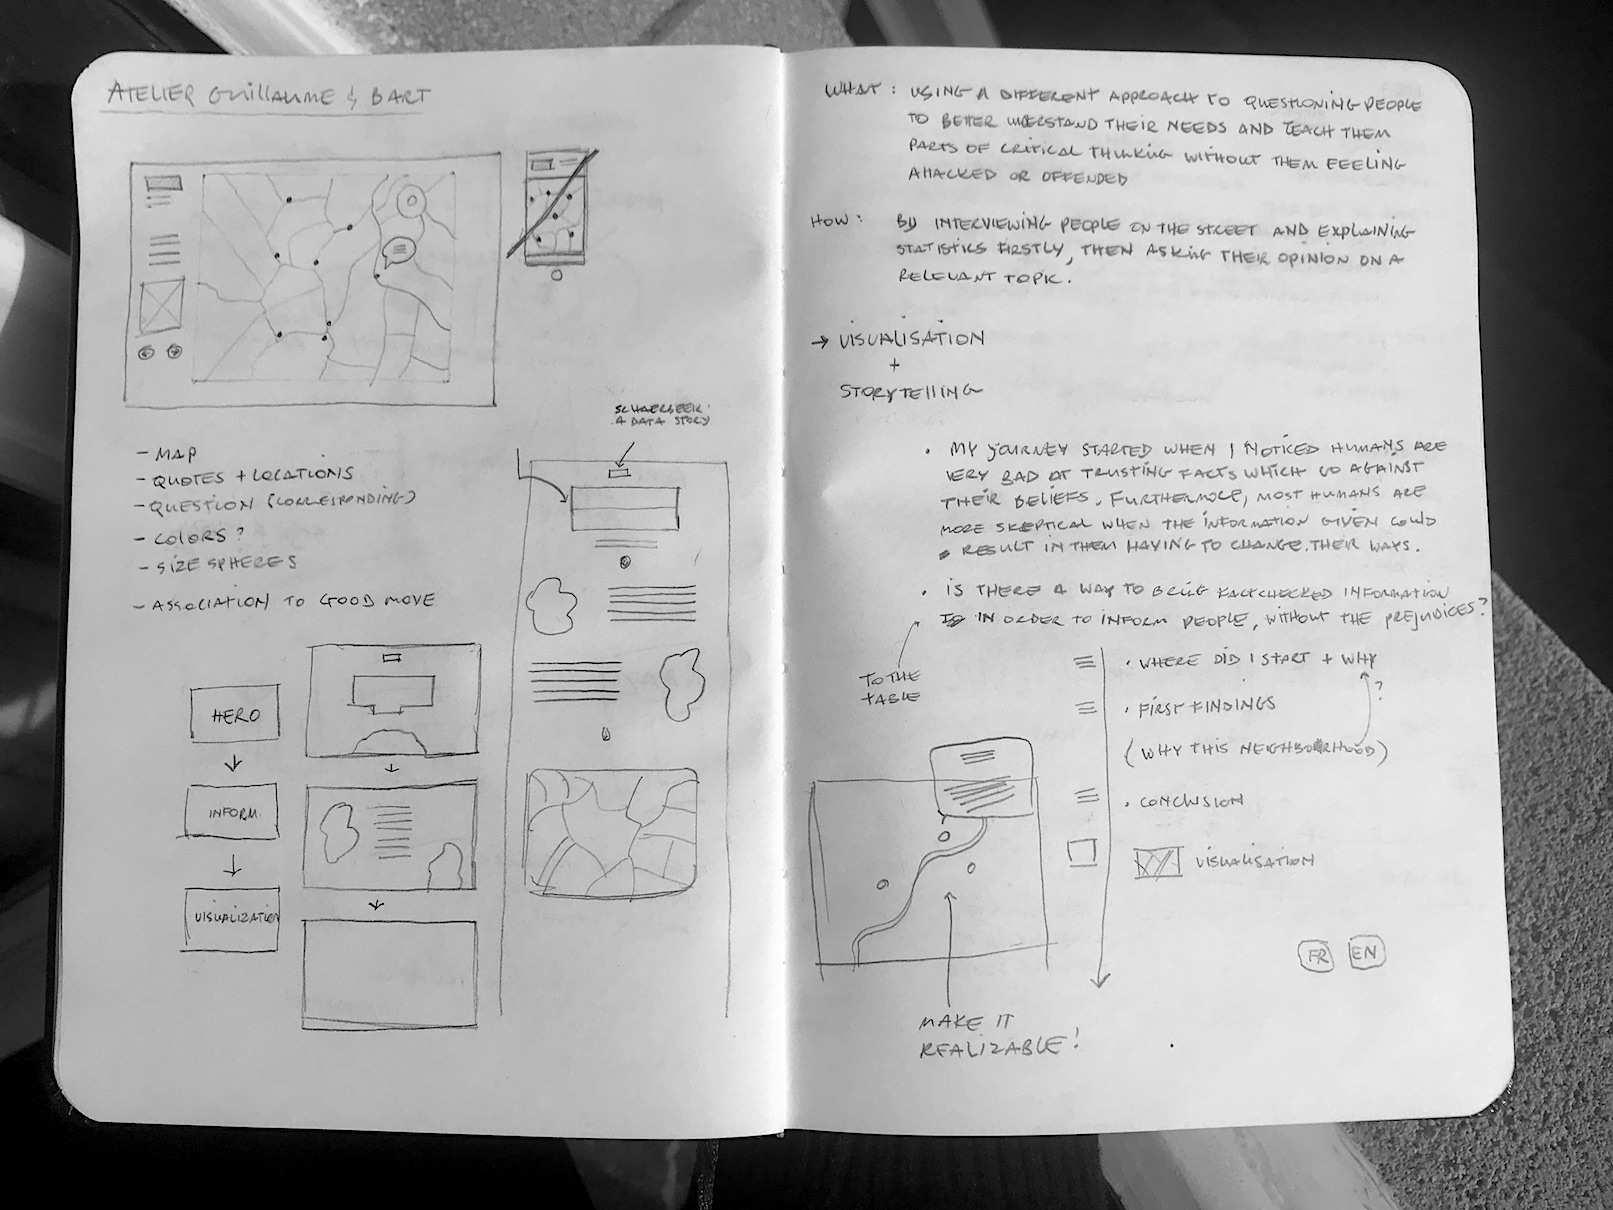 ATELIER GUILLAUME & BART
SCHAERBEEK:
A DATA STORY
- MAP
- QUOTES + LOCATIONS
- QUESTION (CORRESPONDING)
- COLORS?
- SIZE SPHERES
- ASSOCIATION TO GOOD MOVE
HERO
INFORM
VISUALIZATION
WHAT: USING A DIFFERENT APPROACH TO QUESTIONING PEOPLE
TO BETTER UNDERSTAND THEIR NEEDS AND TEACH THEM
PARTS OF CRITICAL THINKING WITHOUT THEM FEELING
ATTACKED OR OFFENDED
HOW: BY INTERVIEWING PEOPLE ON THE STREET AND EXPLAINING
STATISTICS FIRSTLY, THEN ASKING THEIR OPINION ON A
RELEVANT TOPIC.
→ VISUALISATION
+
STORYTELLING
• MY JOURNEY STARTED WHEN I NOTICED HUMANS ARE
VERY BAD AT TRUSTING FACTS WHICH GO AGAINST
THEIR BELIEFS. FURTHERMORE, MOST HUMANS ARE
MORE SKEPTICAL WHEN THE INFORMATION GIVEN COULD
RESULT IN THEM HAVING TO CHANGE THEIR WAYS.
• IS THERE A WAY TO BRING FACTCHECKED INFORMATION
IN ORDER TO INFORM PEOPLE, WITHOUT THE PREJUDICES?
TO THE
TABLE
• WHERE DID I START + WHY
?
• FIRST FINDINGS
(WHY THIS NEIGHBOURHOOD)
• CONCLUSION
VISUALISATION
FR EN
MAKE IT
REALIZABLE!